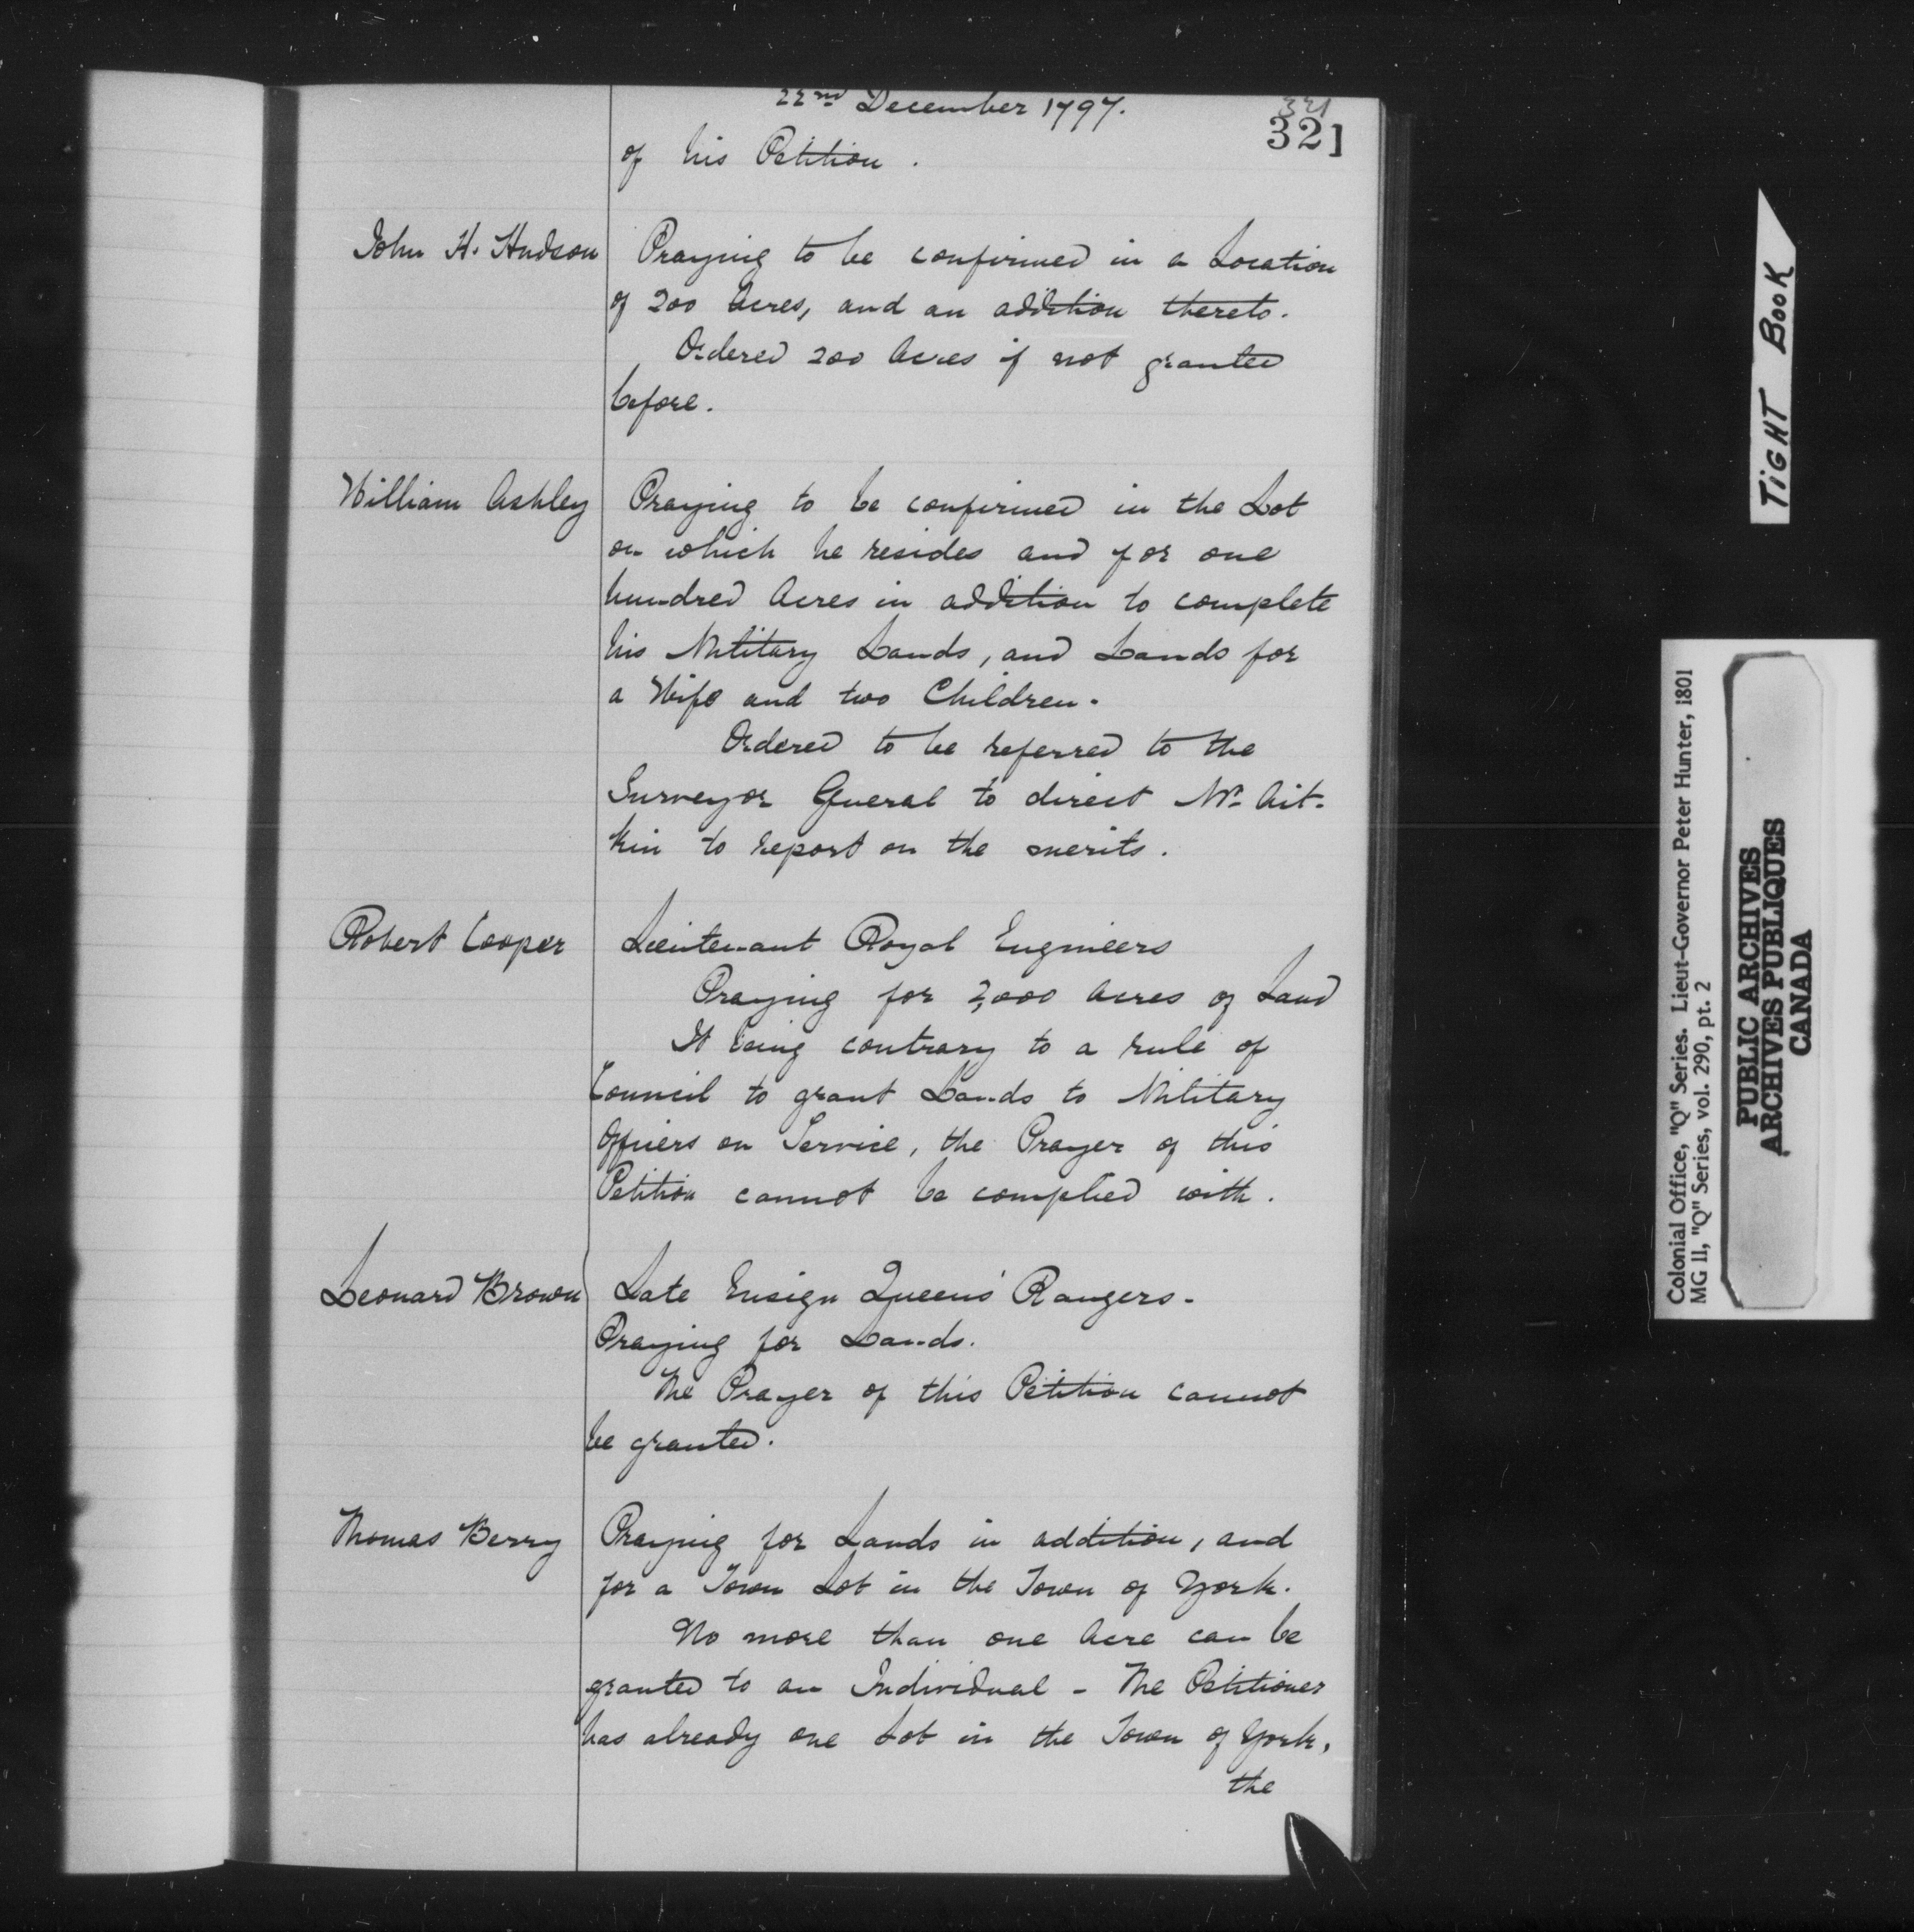 22nd December 1797.
321
321
of his Petition.
John H. Hudson
Praying to be confirmed in a Location
of 200 Acres, and an addition thereto.
Ordered 200 Acres if not granted
before.
William Ashley
Praying to be confirmed in the Lot
on which he resides and for one
hundred Acres in addition to complete
his Military Lands, and Lands for
a Wife and two Children.
Ordered to be referred to the
Surveyor General to direct Mr. Ait-
kin to report on the merits.
Robert Cooper
Lieutenant Royal Engineers
Praying for 2,000 Acres of Land
It being contrary to a rule of
Council to grant Lands to Military
Officers on Service, the Prayer of this
Petition cannot be complied with.
Leonard Brown
Late Ensign Queens' Rangers.
Praying for Lands.
The Prayer of this Petition cannot
be granted.
Thomas Berry
Praying for Lands in addition, and
for a Town Lot in the Town of York.
No more than one Acre can be
granted to an Individual - The Petitioner
has already one Lot in the Town of York,
the
TIGHT BOOK
Colonial Office, "Q" Series. Lieut-Governor Peter Hunter, 1801
MG 11, "Q" Series, vol. 290, pt. 2
PUBLIC ARCHIVES
ARCHIVES PUBLIQUES
CANADA